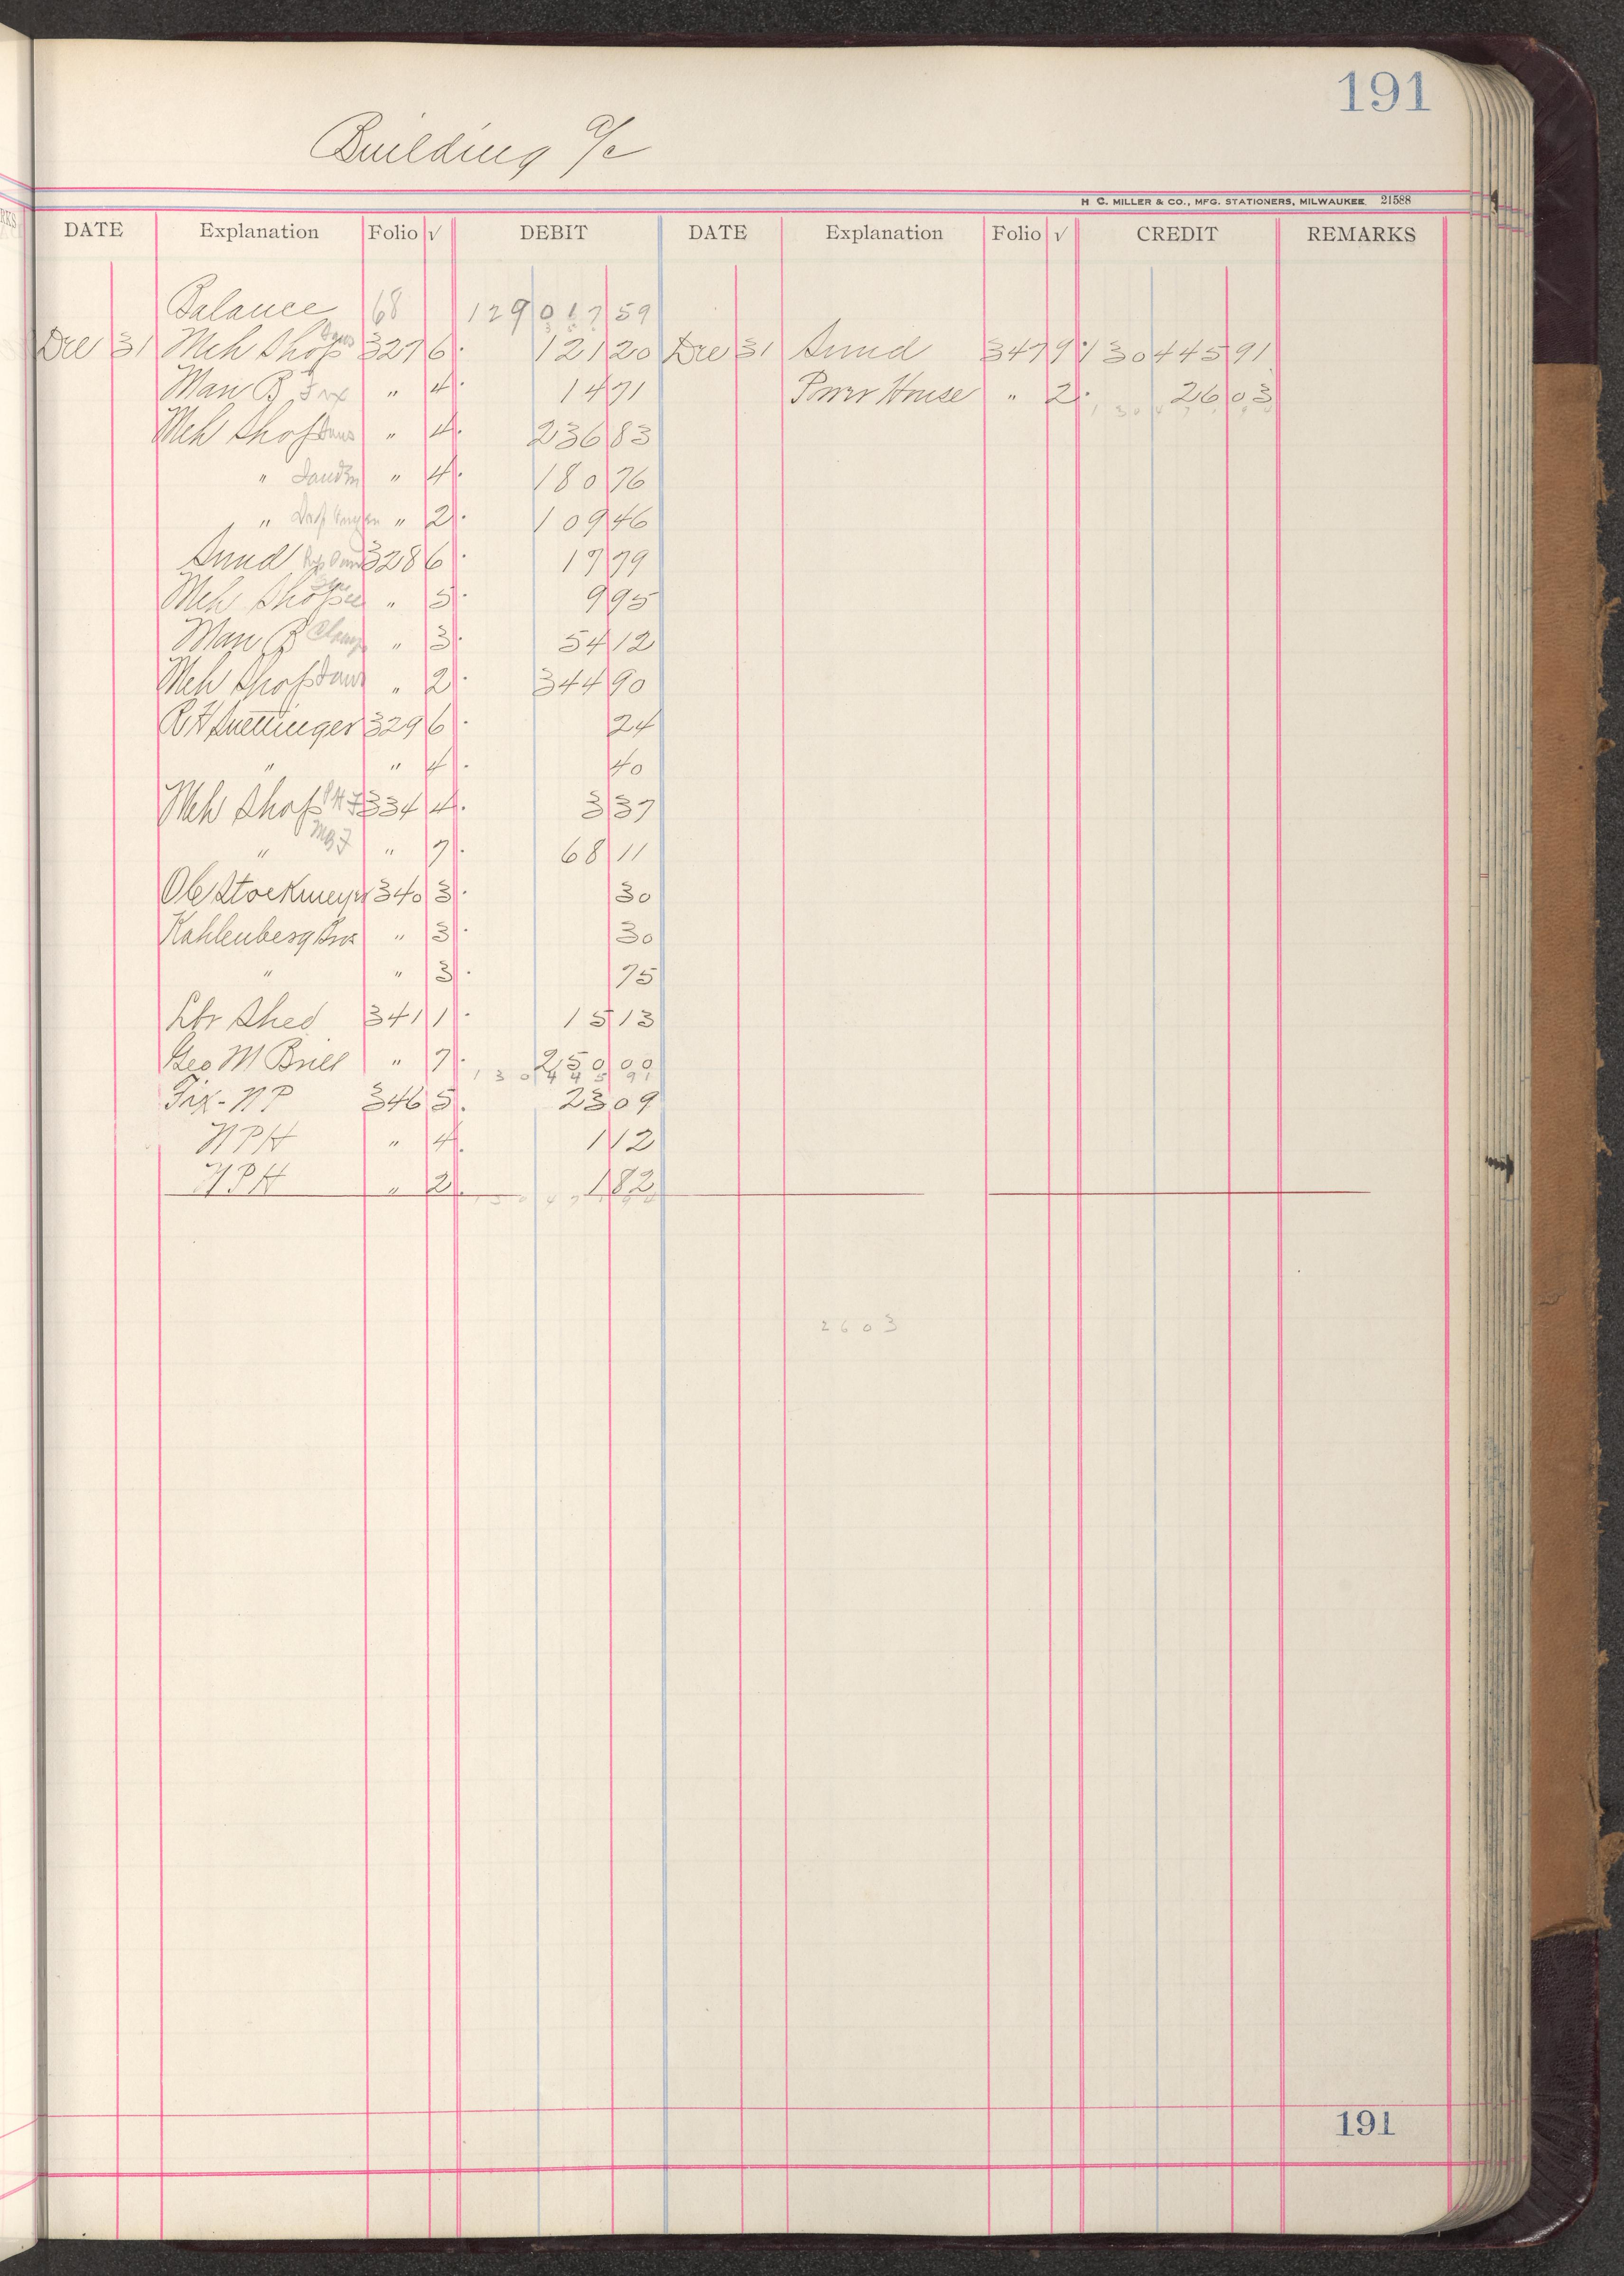 191
Building a/c
H. C. MILLER & CO., MFG. STATIONERS, MILWAUKEE 21588
DATE Explanation Folio √ DEBIT DATE Explanation Folio √ CREDIT REMARKS
Balance 68 129017 59
Dec 31 Mch Shop 327 6 121 20 Dec 31 Sund 347 9 130445 91
Man B " 4 14 71 Power House " 2 26 03
Mch Shop " 4 236 83
" " 4 180 76
" " 2 109 46
Sund 328 6 17 79
Mch Shop " 5 9 95
Man B " 3 54 12
Mch Shop " 2 344 90
329 6 24
" " 4 40
Mch Shop 334 4 3 37
" " 7 68 11
Ole Stockmeyer 340 3 30
Kahlenberg Bros " 3 30
" " 3 75
Lbr Shed 341 1 15 13
Geo M Brill " 7 250 00
130445 91
Fix - N P 346 5 23 09
N P H " 4 1 12
N P H " 2 1 82
2603
191